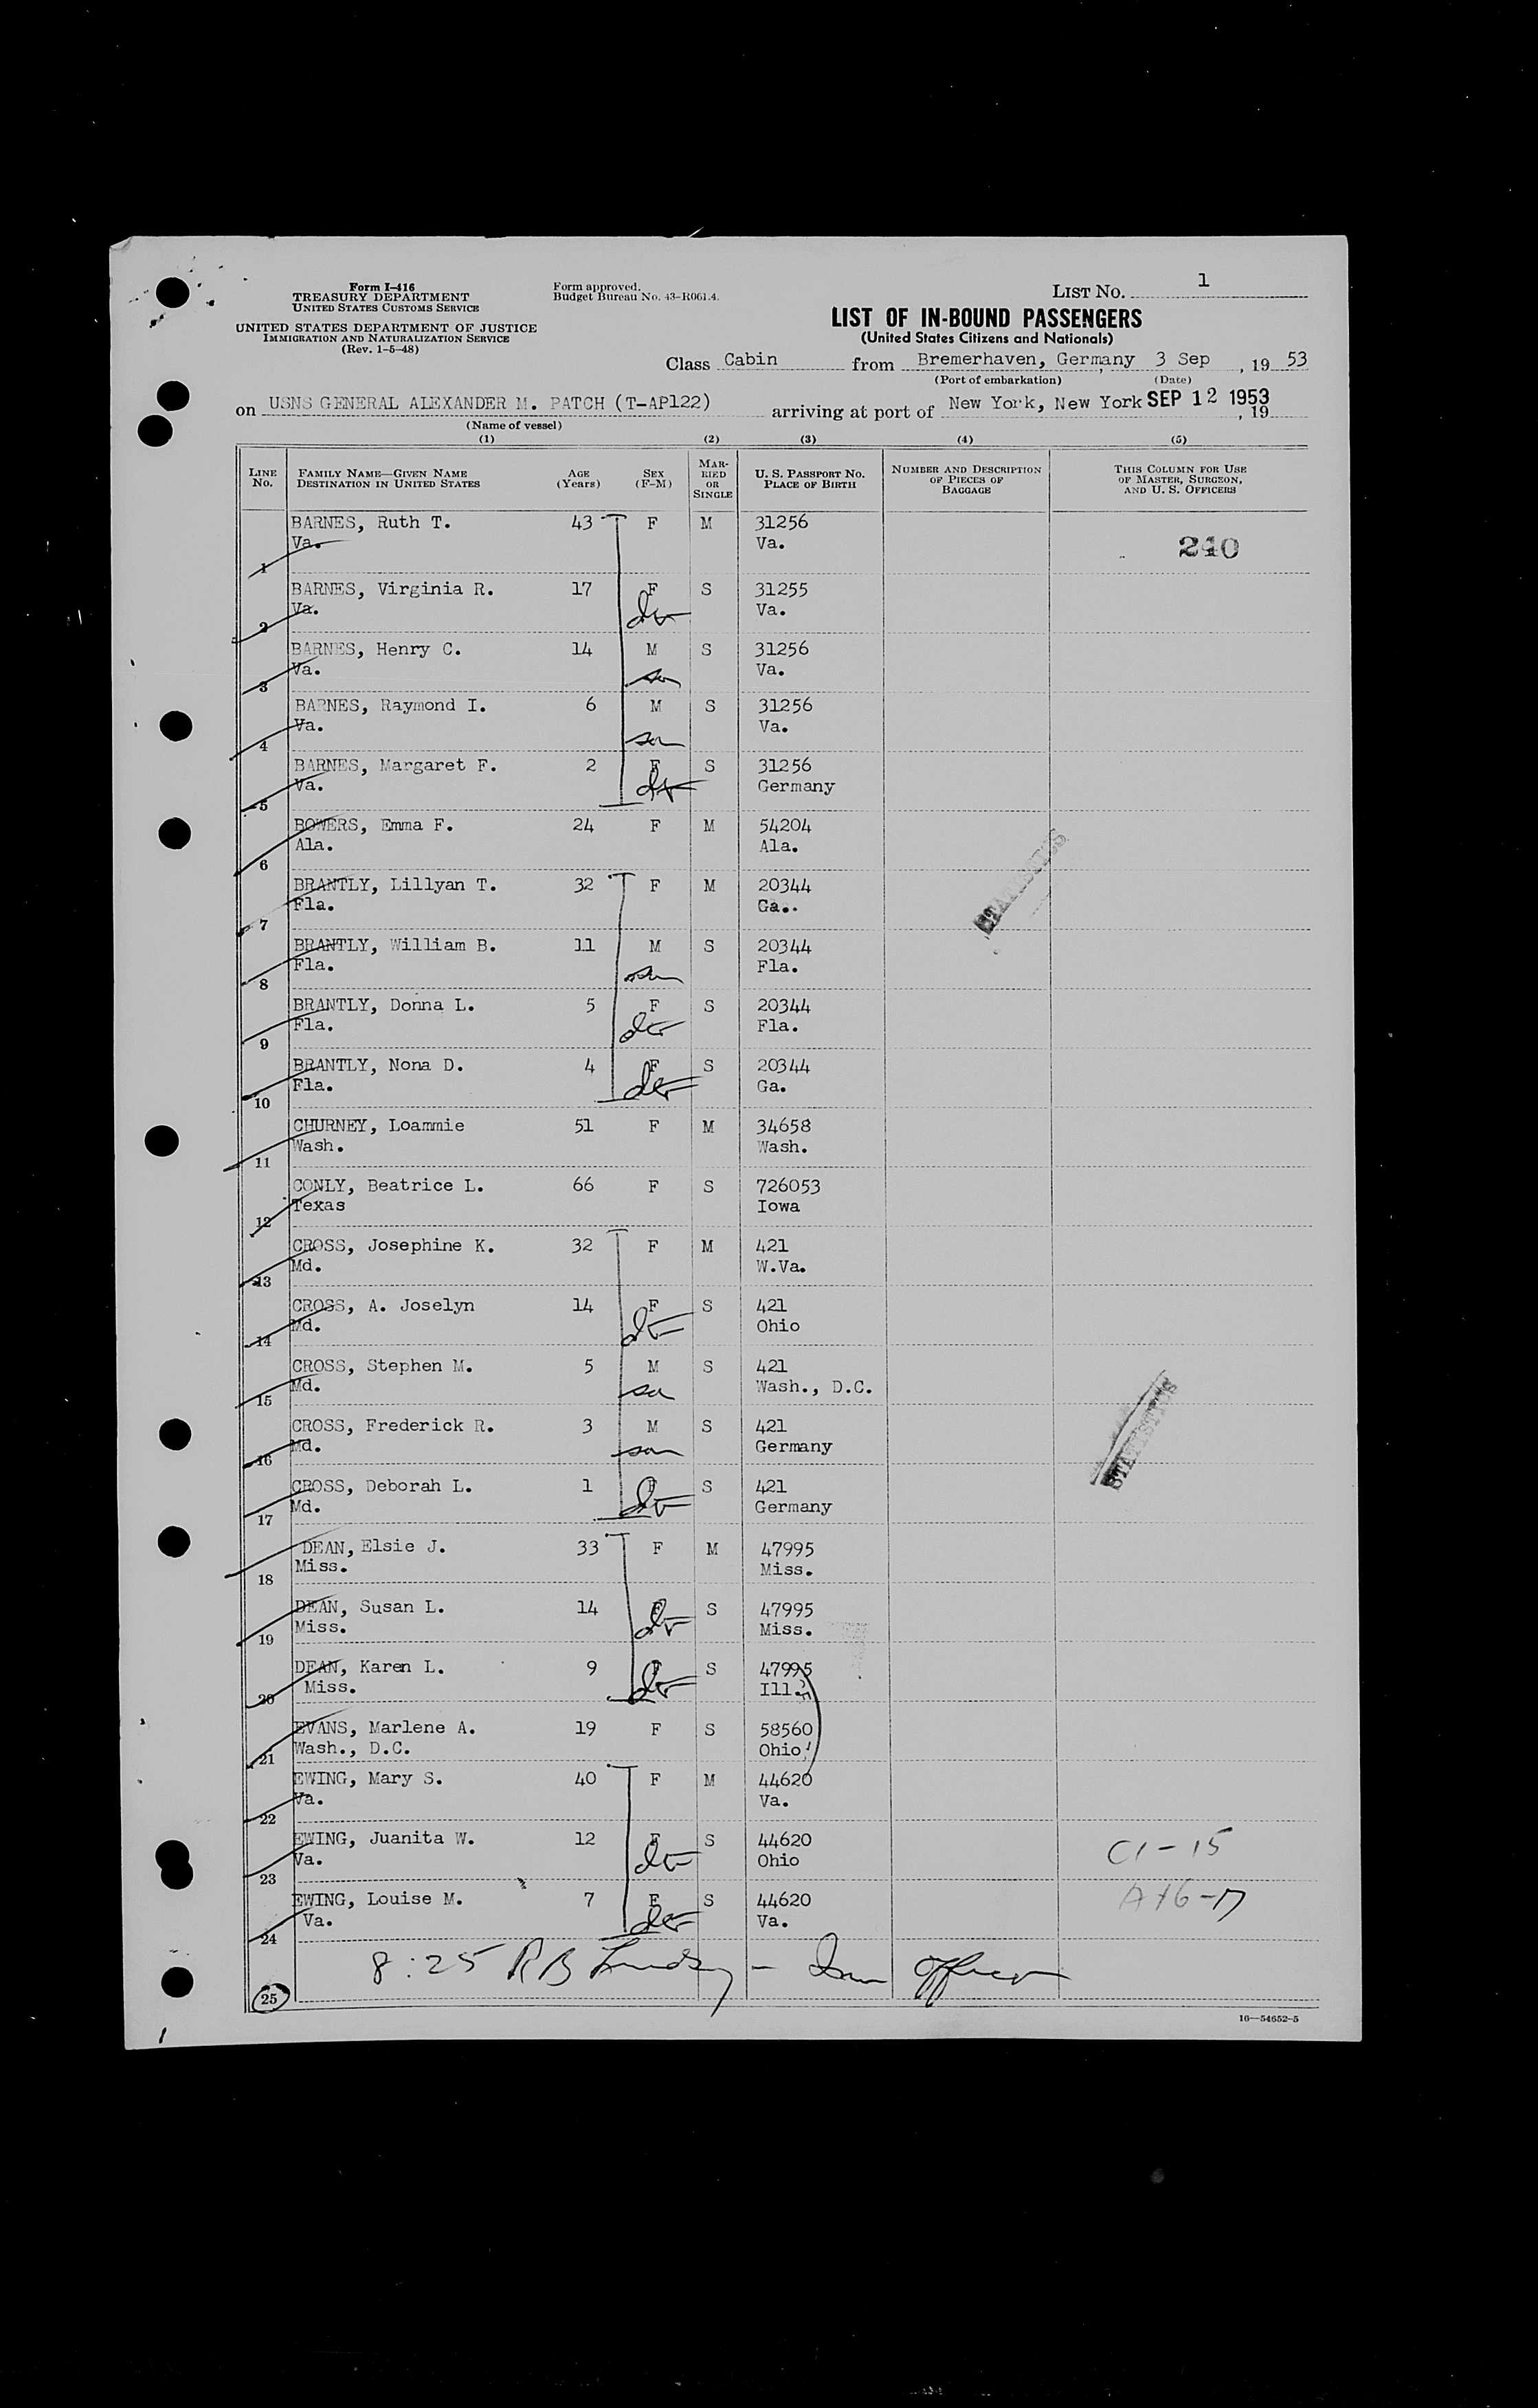 Form I-416
TREASURY DEPARTMENT
UNITED STATES CUSTOMS SERVICE
UNITED STATES DEPARTMENT OF JUSTICE
IMMIGRATION AND NATURALIZATION SERVICE
(Rev. 1-5-48)
Form approved.
Budget Bureau No. 43-R061.4.
LIST NO. 1
LIST OF IN-BOUND PASSENGERS
(United States Citizens and Nationals)
Class Cabin from Bremerhaven, Germany 3 Sep , 19 53
(Port of embarkation) (Date)
on USNS GENERAL ALEXANDER M. PATCH (T-AP122) arriving at port of New York, New York SEP 12 1953 , 19
(Name of vessel)
(1) (2) (3) (4) (5)
LINE NO. FAMILY NAME—GIVEN NAME DESTINATION IN UNITED STATES AGE (Years) SEX (F-M) MARRIED OR SINGLE U. S. PASSPORT NO. PLACE OF BIRTH NUMBER AND DESCRIPTION OF PIECES OF BAGGAGE THIS COLUMN FOR USE OF MASTER, SURGEON, AND U. S. OFFICERS
BARNES, Ruth T. 43 F M 31256
Va. Va. 240
1
BARNES, Virginia R. 17 F S 31255
Va. dtr Va.
2
BARNES, Henry C. 14 M S 31256
Va. son Va.
3
BARNES, Raymond I. 6 M S 31256
Va. son Va.
4
BARNES, Margaret F. 2 F S 31256
Va. dtr Germany
5
BOWERS, Emma F. 24 F M 54204
Ala. Ala.
6
BRANTLY, Lillyan T. 32 F M 20344
Fla. Ga.
7
BRANTLY, William B. 11 M S 20344
Fla. son Fla.
8
BRANTLY, Donna L. 5 F S 20344
Fla. dtr Fla.
9
BRANTLY, Nona D. 4 F S 20344
Fla. dtr Ga.
10
CHURNEY, Loammie 51 F M 34658
Wash. Wash.
11
CONLY, Beatrice L. 66 F S 726053
Texas Iowa
12
CROSS, Josephine K. 32 F M 421
Md. W.Va.
13
CROSS, A. Joselyn 14 F S 421
Md. dtr Ohio
14
CROSS, Stephen M. 5 M S 421
Md. son Wash., D.C.
15
CROSS, Frederick R. 3 M S 421
Md. son Germany
16
STATISTICS
CROSS, Deborah L. 1 F S 421
Md. dtr Germany
17
DEAN, Elsie J. 33 F M 47995
Miss. Miss.
18
DEAN, Susan L. 14 F S 47995
Miss. dtr Miss.
19
DEAN, Karen L. 9 F S 47995
Miss. dtr Ill.
20
EVANS, Marlene A. 19 F S 58560
Wash., D.C. Ohio
21
EWING, Mary S. 40 F M 44620
Va. Va.
22
EWING, Juanita W. 12 F S 44620
Va. dtr Ohio C1-15
23
EWING, Louise M. 7 F S 44620
Va. dtr Va.
24
8:25 R B - Imm Officer
25
16—54652-5